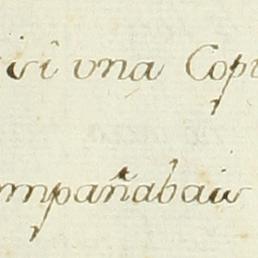 isi una Copi
mpañabais